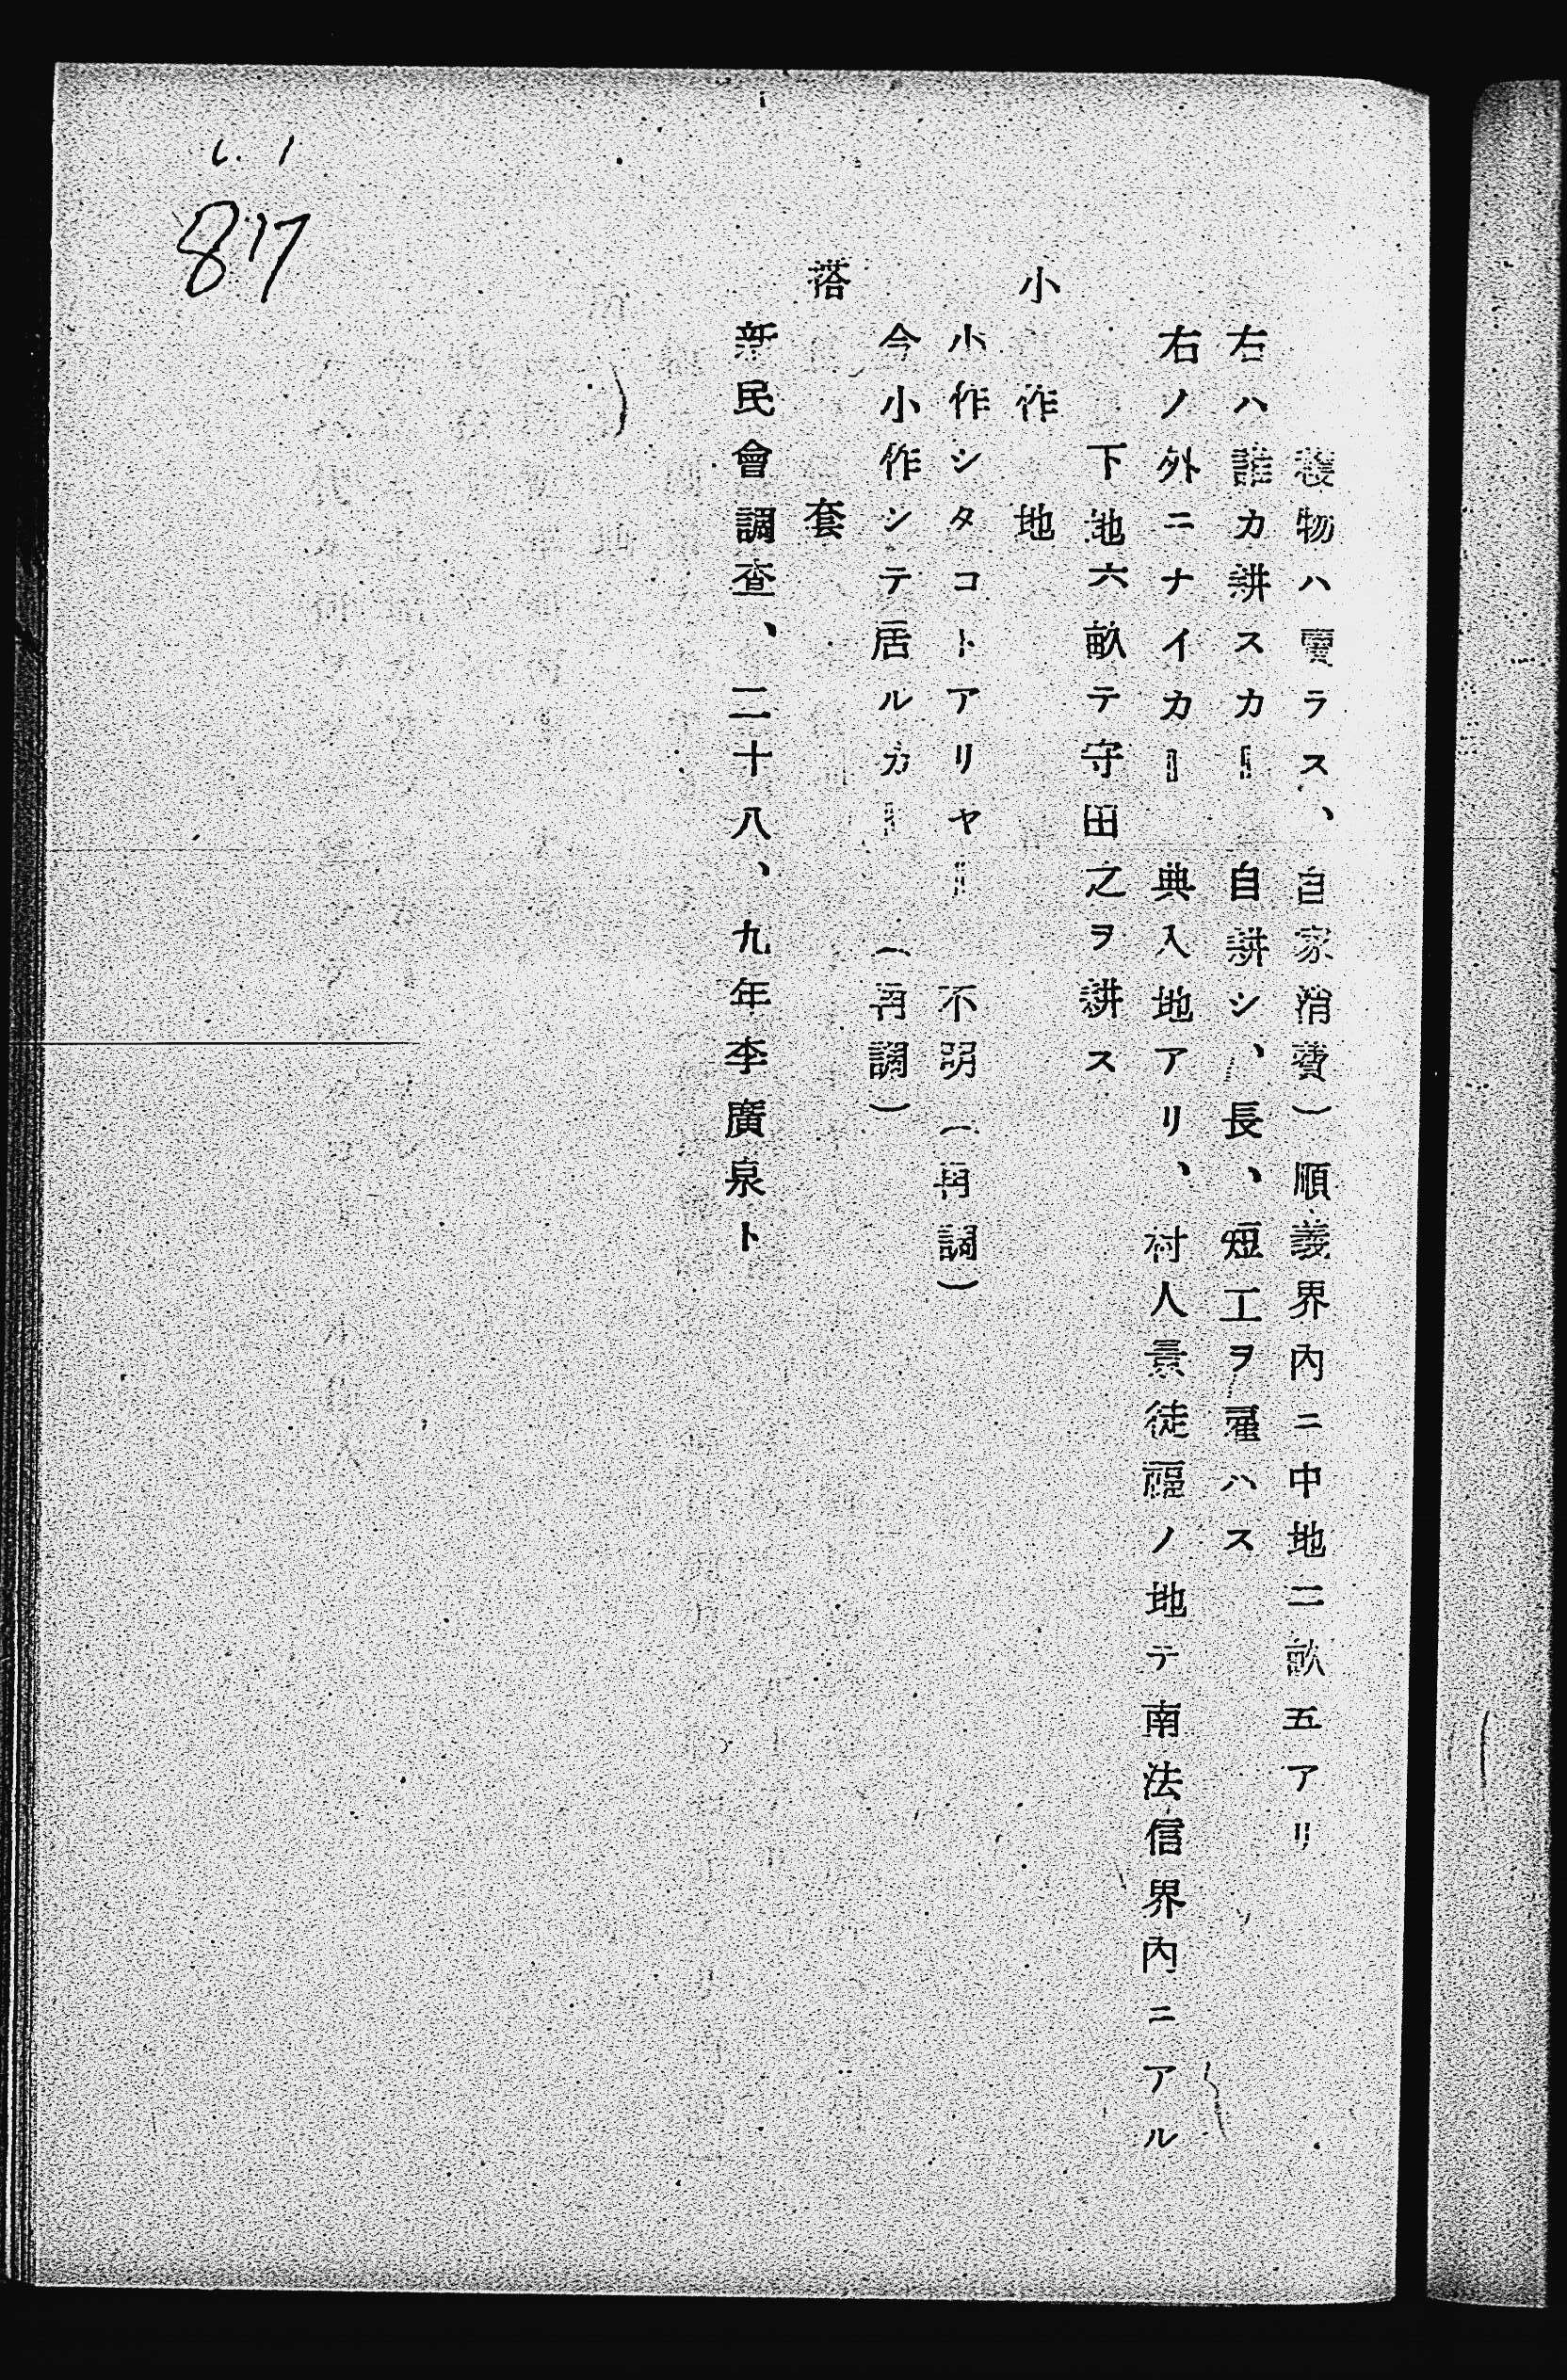 穫物ハ賣ラス、自家消費)順義界内ニ中地二畝五アリ
右ハ誰カ耕スカ=自耕シ、長、短工ヲ雇ハス
右ノ外ニナイカ=典入地アリ、村人景徒福ノ地テ南法信界内ニアル
下地六畝テ守田之ヲ耕ス
小作地
小作シタコトアリヤ=不明(再調)
今小作シテ居ルカ=(再調)
搭套
新民會調査、二十八、九年李廣泉ト
817